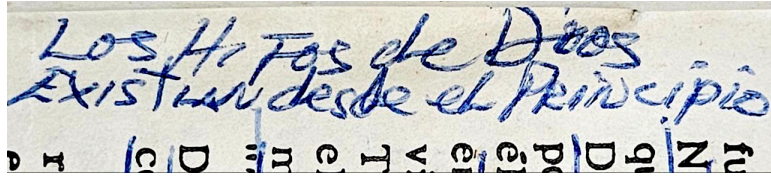 Los HiJos de Dios
EXISTIAN desde el PRINcipio